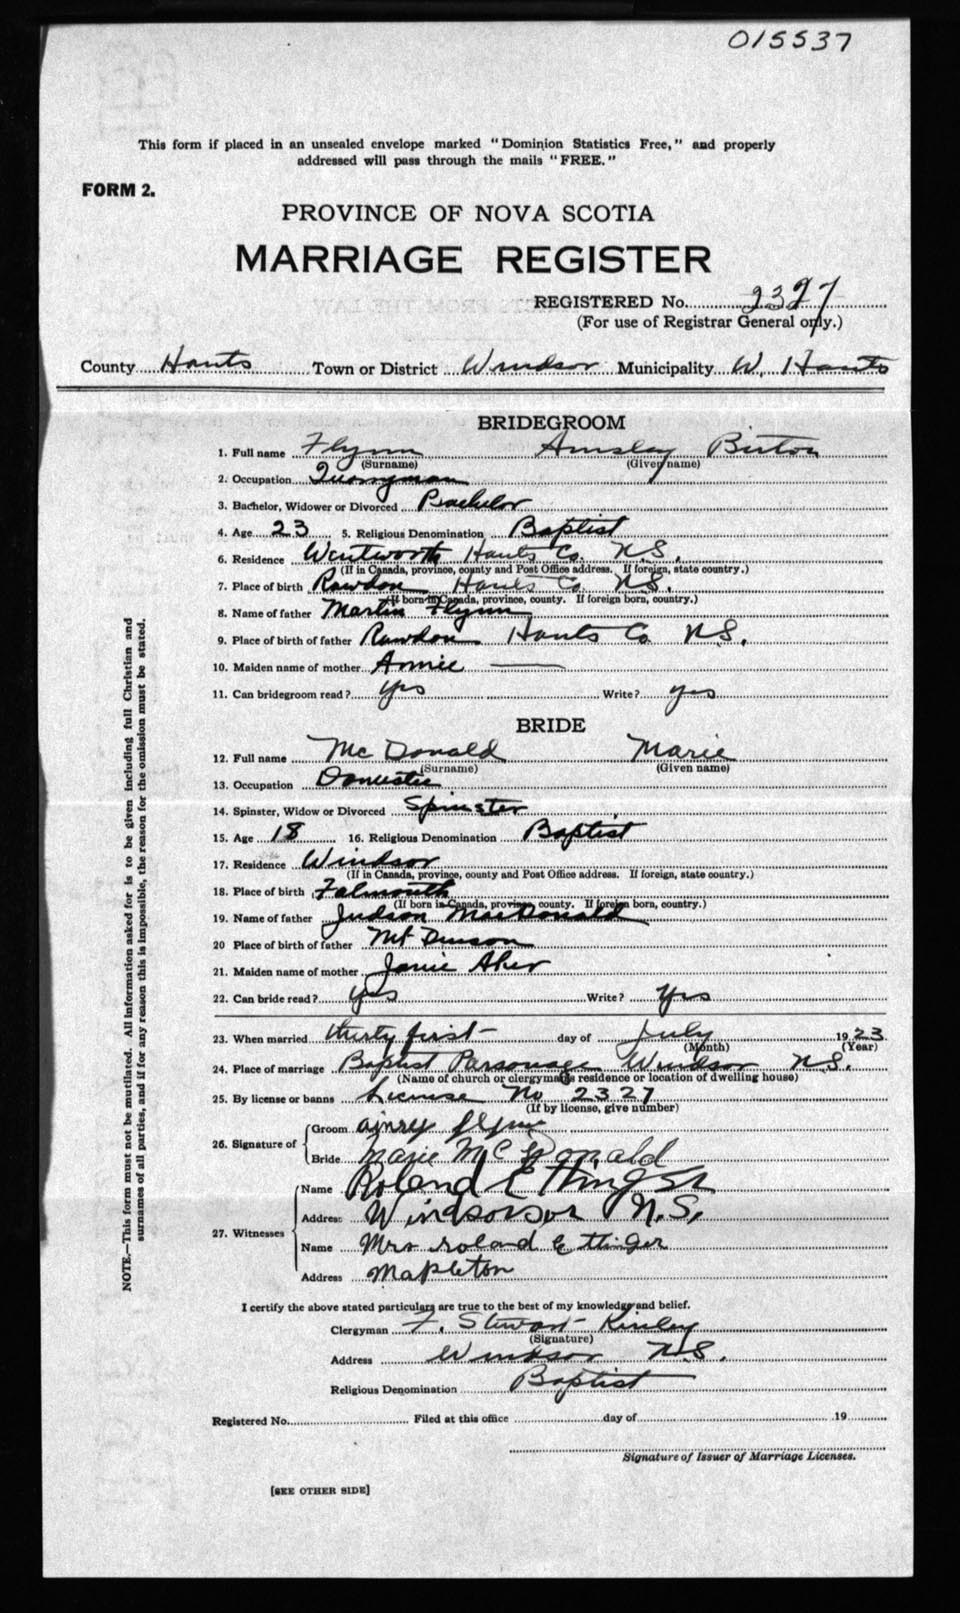 015537
This form if placed in an unsealed envelope marked "Dominion Statistics Free," and properly
addressed will pass through the mails "FREE."
FORM 2.
PROVINCE OF NOVA SCOTIA
MARRIAGE REGISTER
REGISTERED No. 2327
(For use of Registrar General only.)
County Hants Town or District Windsor Municipality W. Hants
BRIDEGROOM
1. Full name Flynn Ainsley Burton
(Surname) (Given name)
2. Occupation Quarryman
3. Bachelor, Widower or Divorced Bachelor
4. Age 23 5. Religious Denomination Baptist
6. Residence Wentworth Hants Co. N.S.
(If in Canada, province, county and Post Office address. If foreign, state country.)
7. Place of birth Rawdon Hants Co. N.S.
(If born in Canada, province, county. If foreign born, country.)
8. Name of father Martin Flynn
9. Place of birth of father Rawdon Hants Co N.S.
10. Maiden name of mother Annie —
11. Can bridegroom read? yes Write? yes
BRIDE
12. Full name McDonald Marie
(Surname) (Given name)
13. Occupation Domestic
14. Spinster, Widow or Divorced Spinster
15. Age 18 16. Religious Denomination Baptist
17. Residence Windsor
(If in Canada, province, county and Post Office address. If foreign, state country.)
18. Place of birth Falmouth
(If born in Canada, province, county. If foreign born, country.)
19. Name of father Judson MacDonald
20 Place of birth of father Mt Denson
21. Maiden name of mother Janie Aker
22. Can bride read? yes Write? yes
23. When married thirty first day of July 1923
(Month) (Year)
24. Place of marriage Baptist Parsonage Windsor N.S.
(Name of church or clergyman's residence or location of dwelling house)
25. By license or banns License No 2327
(If by license, give number)
26. Signature of Groom flynn
Bride Marie McDonald
27. Witnesses Name Roland Ettinger
Address Windsorsor N.S.
Name Mrs roland Ettinger
Address Mapleton
I certify the above stated particulars are true to the best of my knowledge and belief.
Clergyman F. Stewart Kinley
(Signature)
Address Windsor N.S.
Religious Denomination Baptist
Registered No. Filed at this office day of 19
Signature of Issuer of Marriage Licenses.
[SEE OTHER SIDE]
NOTE.—This form must not be mutilated. All information asked for is to be given including full Christian and
surnames of all parties, and if for any reason this is impossible, the reason for the omission must be stated.